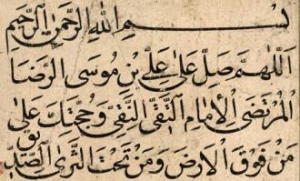 بسم الله الرحمن الرحيم
اللهم صل على علي بن موسى الرضا
المرتضى الامام التقي النقي وحجتك على
من فوق الارض ومن تحت الثرى الصديق